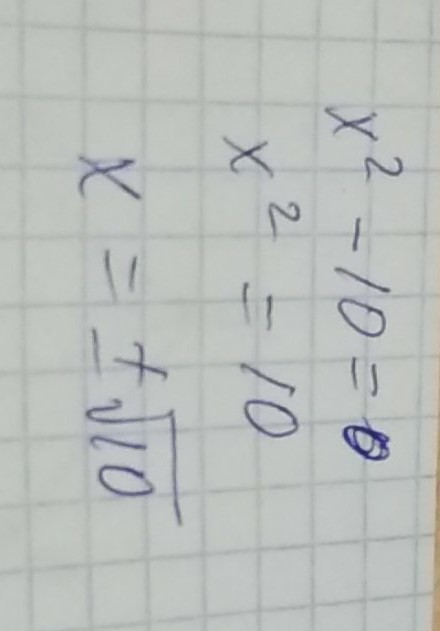 x² - 10 = 0
x² = 10
x = ±√10